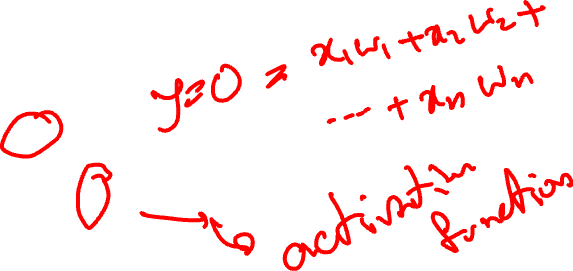 y=0 = x1w1+x2w2+
... + xn wn
activation
function